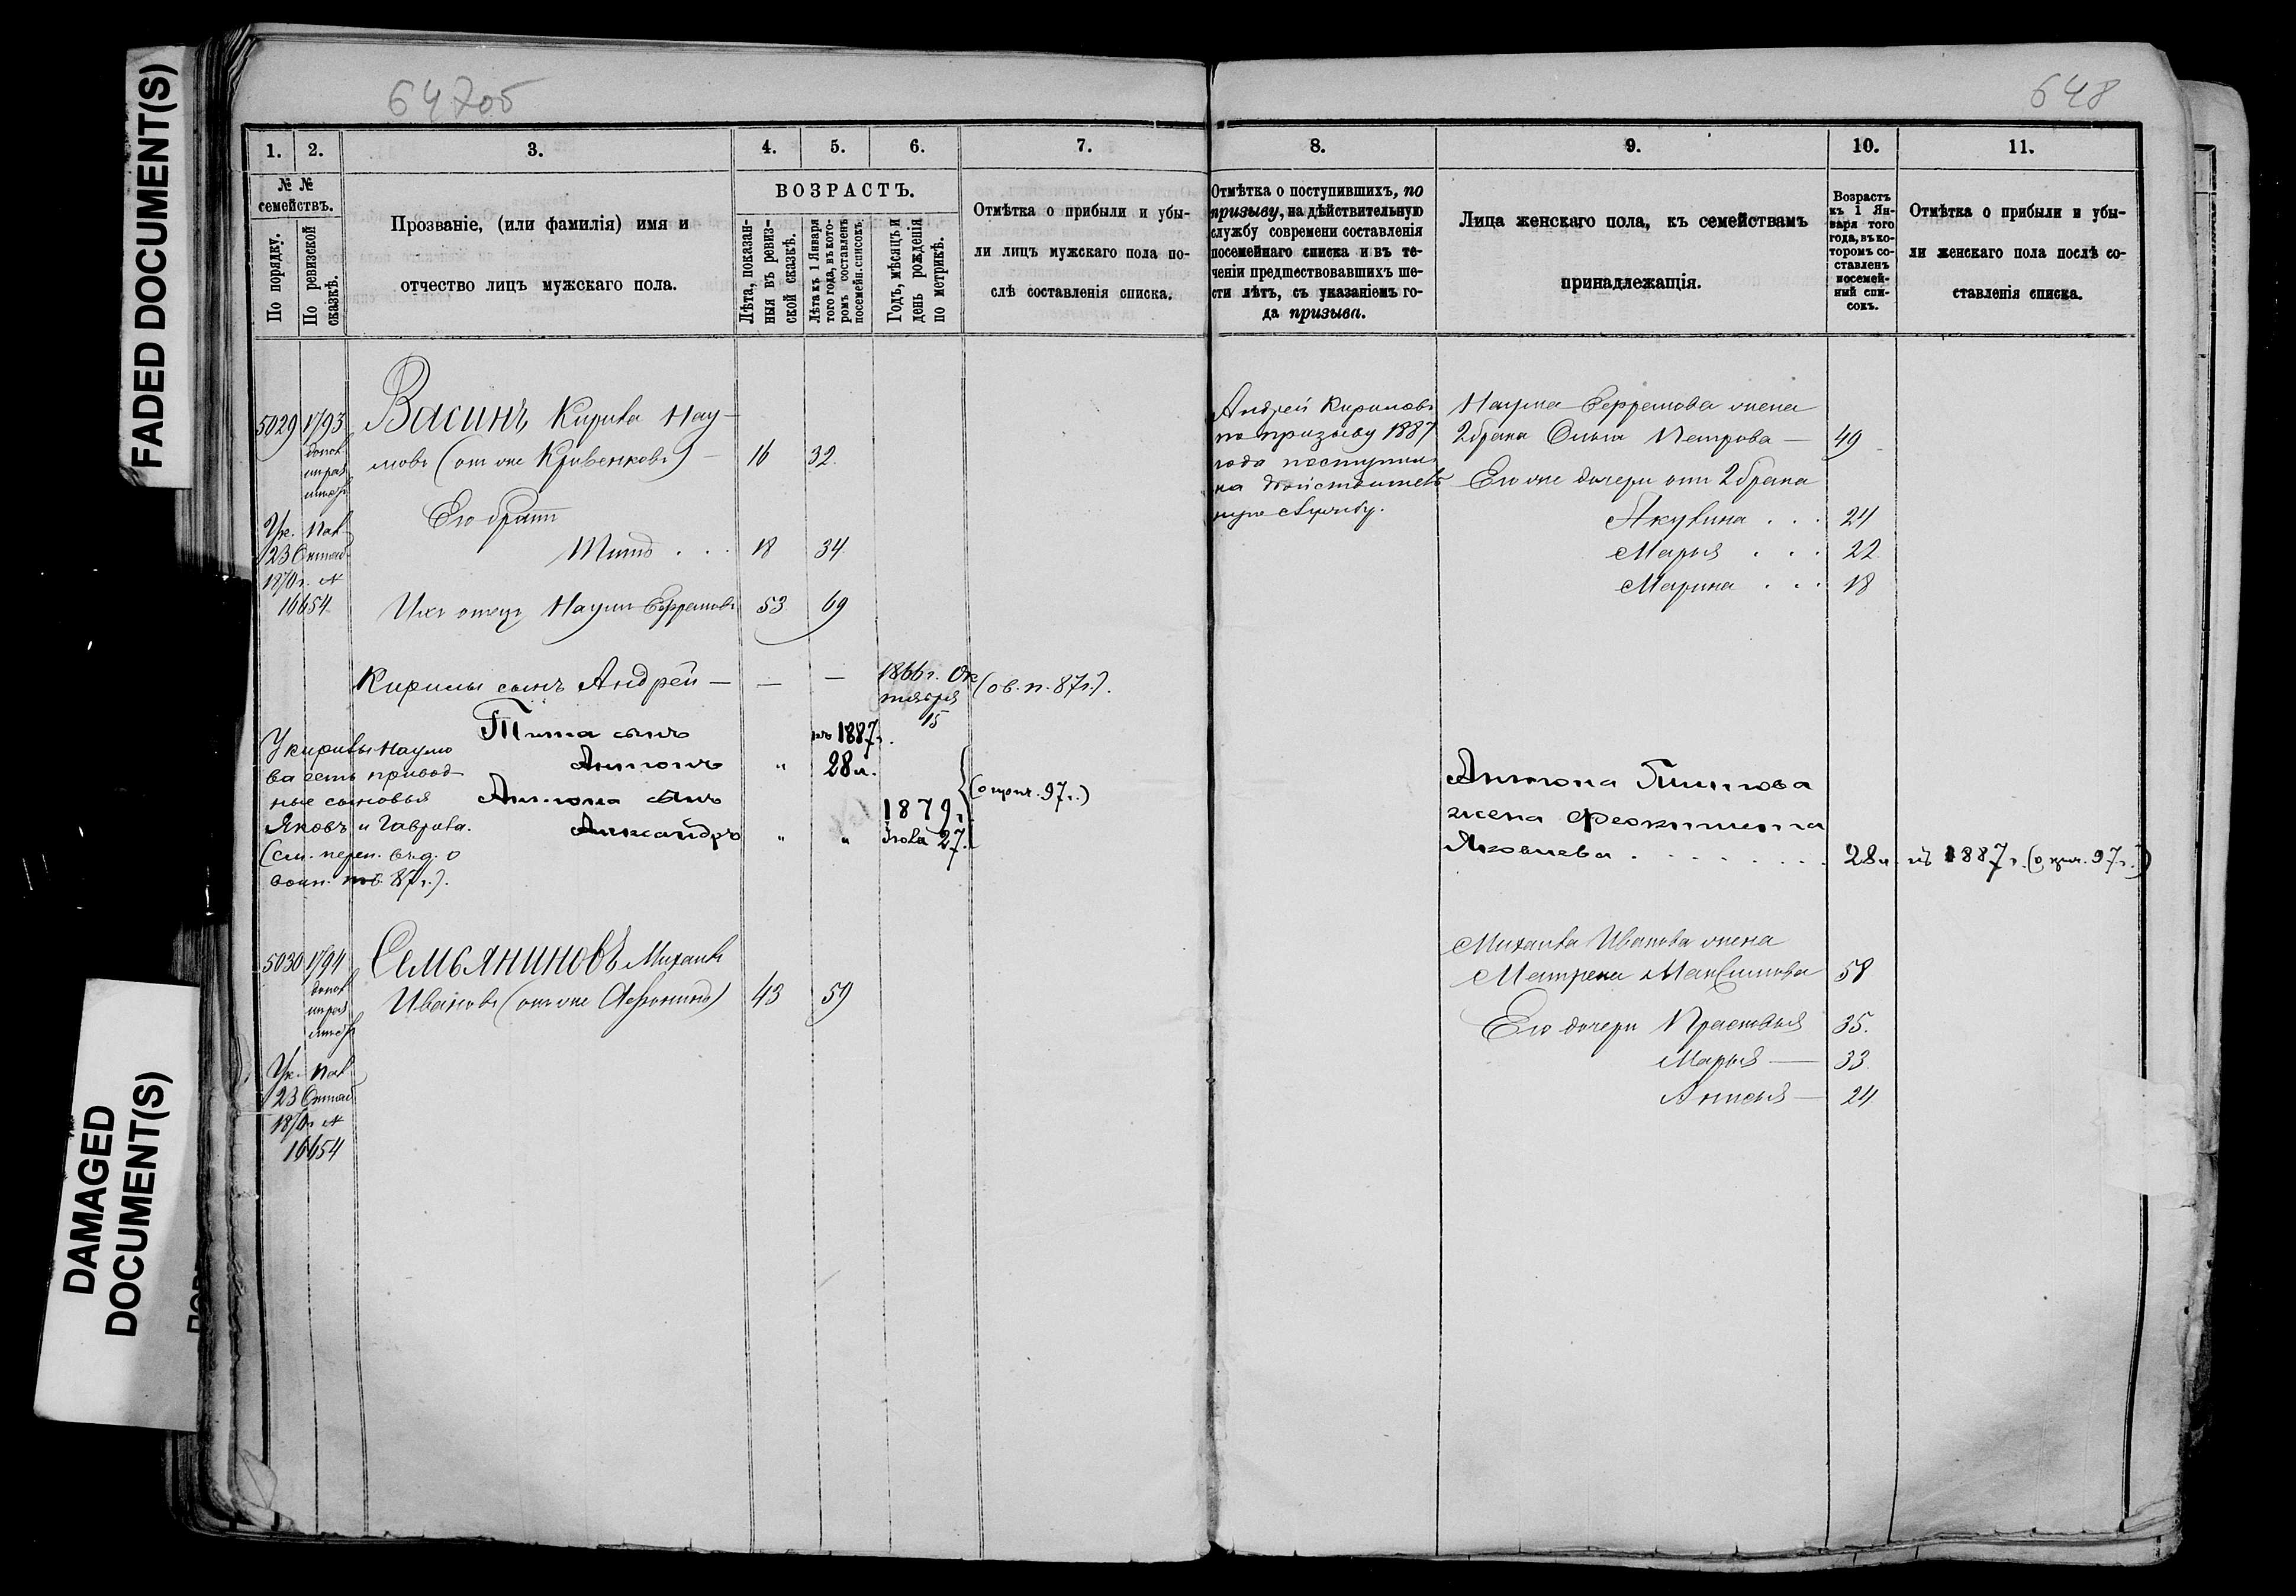 FADED DOCUMENT(S)
DAMAGED
DOCUMENT(S)
647об
1. 2. 3. 4. 5. 6. 7.
№ №
семействъ.
По порядку.
По ревизской
сказкѣ.
Прозваніе, (или фамилія) имя и
отчество лицъ мужскаго пола.
ВОЗРАСТЪ.
Лѣта, показан-
ныя въ ревиз-
ской сказкѣ.
Лѣта къ 1 Января
того года, въ кото-
ромъ составленъ
посемейн. списокъ.
Годъ, мѣсяцъ и
день рожденія
по метрикѣ.
Отмѣтка о прибыли и убы-
ли лицъ мужскаго пола по-
слѣ составленія списка.
5029 1793 Васинъ Кирила Нау-
мовъ (он же Кривенковъ) — 16 32.
Его братъ
Титъ . . . 18 34.
Ук. Пал.
23 Октяб.
1870 г. №
16654.
Ихъ отецъ Наумъ Ефремовъ 53 69
Кирилы сынъ Андрей — — — 1866 г. Ок
тября
15
(ов. п. 87 г.).
Тита сынъ къ 1887 г.
Антонъ " 28 л.
Антона сынъ 1879 г.
Александръ " " Іюля 27.
У Кирилы Наумо
ва есть привод-
ные сыновья
Яковъ и Гаврила.
5030 1794 Семьяниновъ Михаилъ
Ивановъ (онъ же Афонинъ) 43 59
Ук. Пал.
23 Октяб.
1870 г. №
16654
648
8. 9. 10. 11.
Отмѣтка о поступившихъ, по
призыву, на дѣйствительную
службу современи составленія
посемейнаго списка и въ те-
ченіи предшествовавшихъ ше-
сти лѣтъ, съ указаніемъ го-
да призыва.
Лица женскаго пола, къ семействамъ
принадлежащія.
Возрастъ
къ 1 Ян-
варя того
года, въ ко-
торомъ со-
ставленъ
посемей-
ный спи-
сокъ.
Отмѣтка о прибыли и убы-
ли женскаго пола послѣ со-
ставленія списка.
Андрей Кириловъ
по призыву 1887
года поступилъ
на дѣйствитель
ную службу.
Наума Ефремова жена
2 брака Ольга Петрова — 49
Его же дочери отъ 2 брака
Акулина . . . 24
Марья . . . 22
Марина . . . 18
Антона Титова
жена Феоктиста
Яковлева . . . . . . . . 28 л. къ 1887 г.
Михаила Иванова жена
Матрена Максимова 58
Его дочери Прасковья 35.
Марья — 33.
Анисья — 24